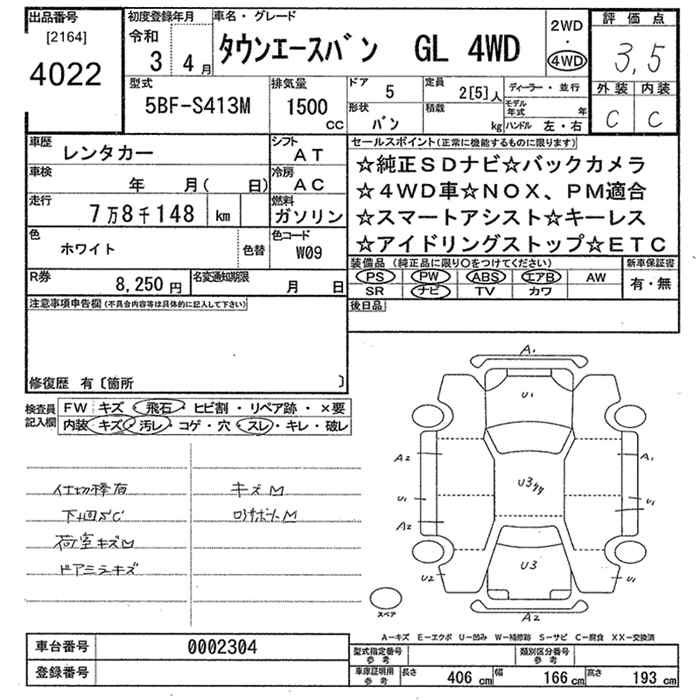 出品番号
[2164]
4022
初度登録年月
令和
3 4月
車名・グレード
タウンエースバン GL 4WD
2WD
・
4WD
評価点
3,5
外装 内装
C C
型式
5BF-S413M
排気量
1500
CC
ドア
5
定員
2[5]人
形状
バン
積載
kg
ディーラー・並行
モデル年式 年
ハンドル 左・右
車歴
レンタカー
シフト
AT
車検
年 月( 日)
冷房
AC
走行
7万8千148 km
燃料
ガソリン
色
ホワイト
色替
色コード
W09
R券
8,250円
名変通知期限
月 日
セールスポイント(正常に機能するものに限ります)
☆純正SDナビ☆バックカメラ
☆4WD車☆NOX、PM適合
☆スマートアシスト☆キーレス
☆アイドリングストップ☆ETC
装備品(純正品に限り○をつけてください)
新車保証書
PS PW ABS エアB AW
SR ナビ TV カワ
有・無
後日品
注意事項申告欄(不具合内容等は具体的に記入して下さい)
修復歴 有〔箇所 〕
検査員記入欄
FW キズ・飛石・ヒビ割・リペア跡・×要
内装 キズ・汚レ・コゲ・穴・スレ・キレ・破レ
仕切棒有
キズM
下廻サビC
荷室キズM
ドアミラキズ
A1
U1
A2
A1
U3
U1
U1
A2
U2
U3
U1
A2
スペア
A−キズ E−エクボ U−凹み W−補修跡 S−サビ C−腐食 XX−交換済
車台番号
0002304
登録番号
型式指定番号
参考
類別区分番号
参考
車庫証明用
参考
長さ 406 cm
幅 166 cm
高さ 193 cm